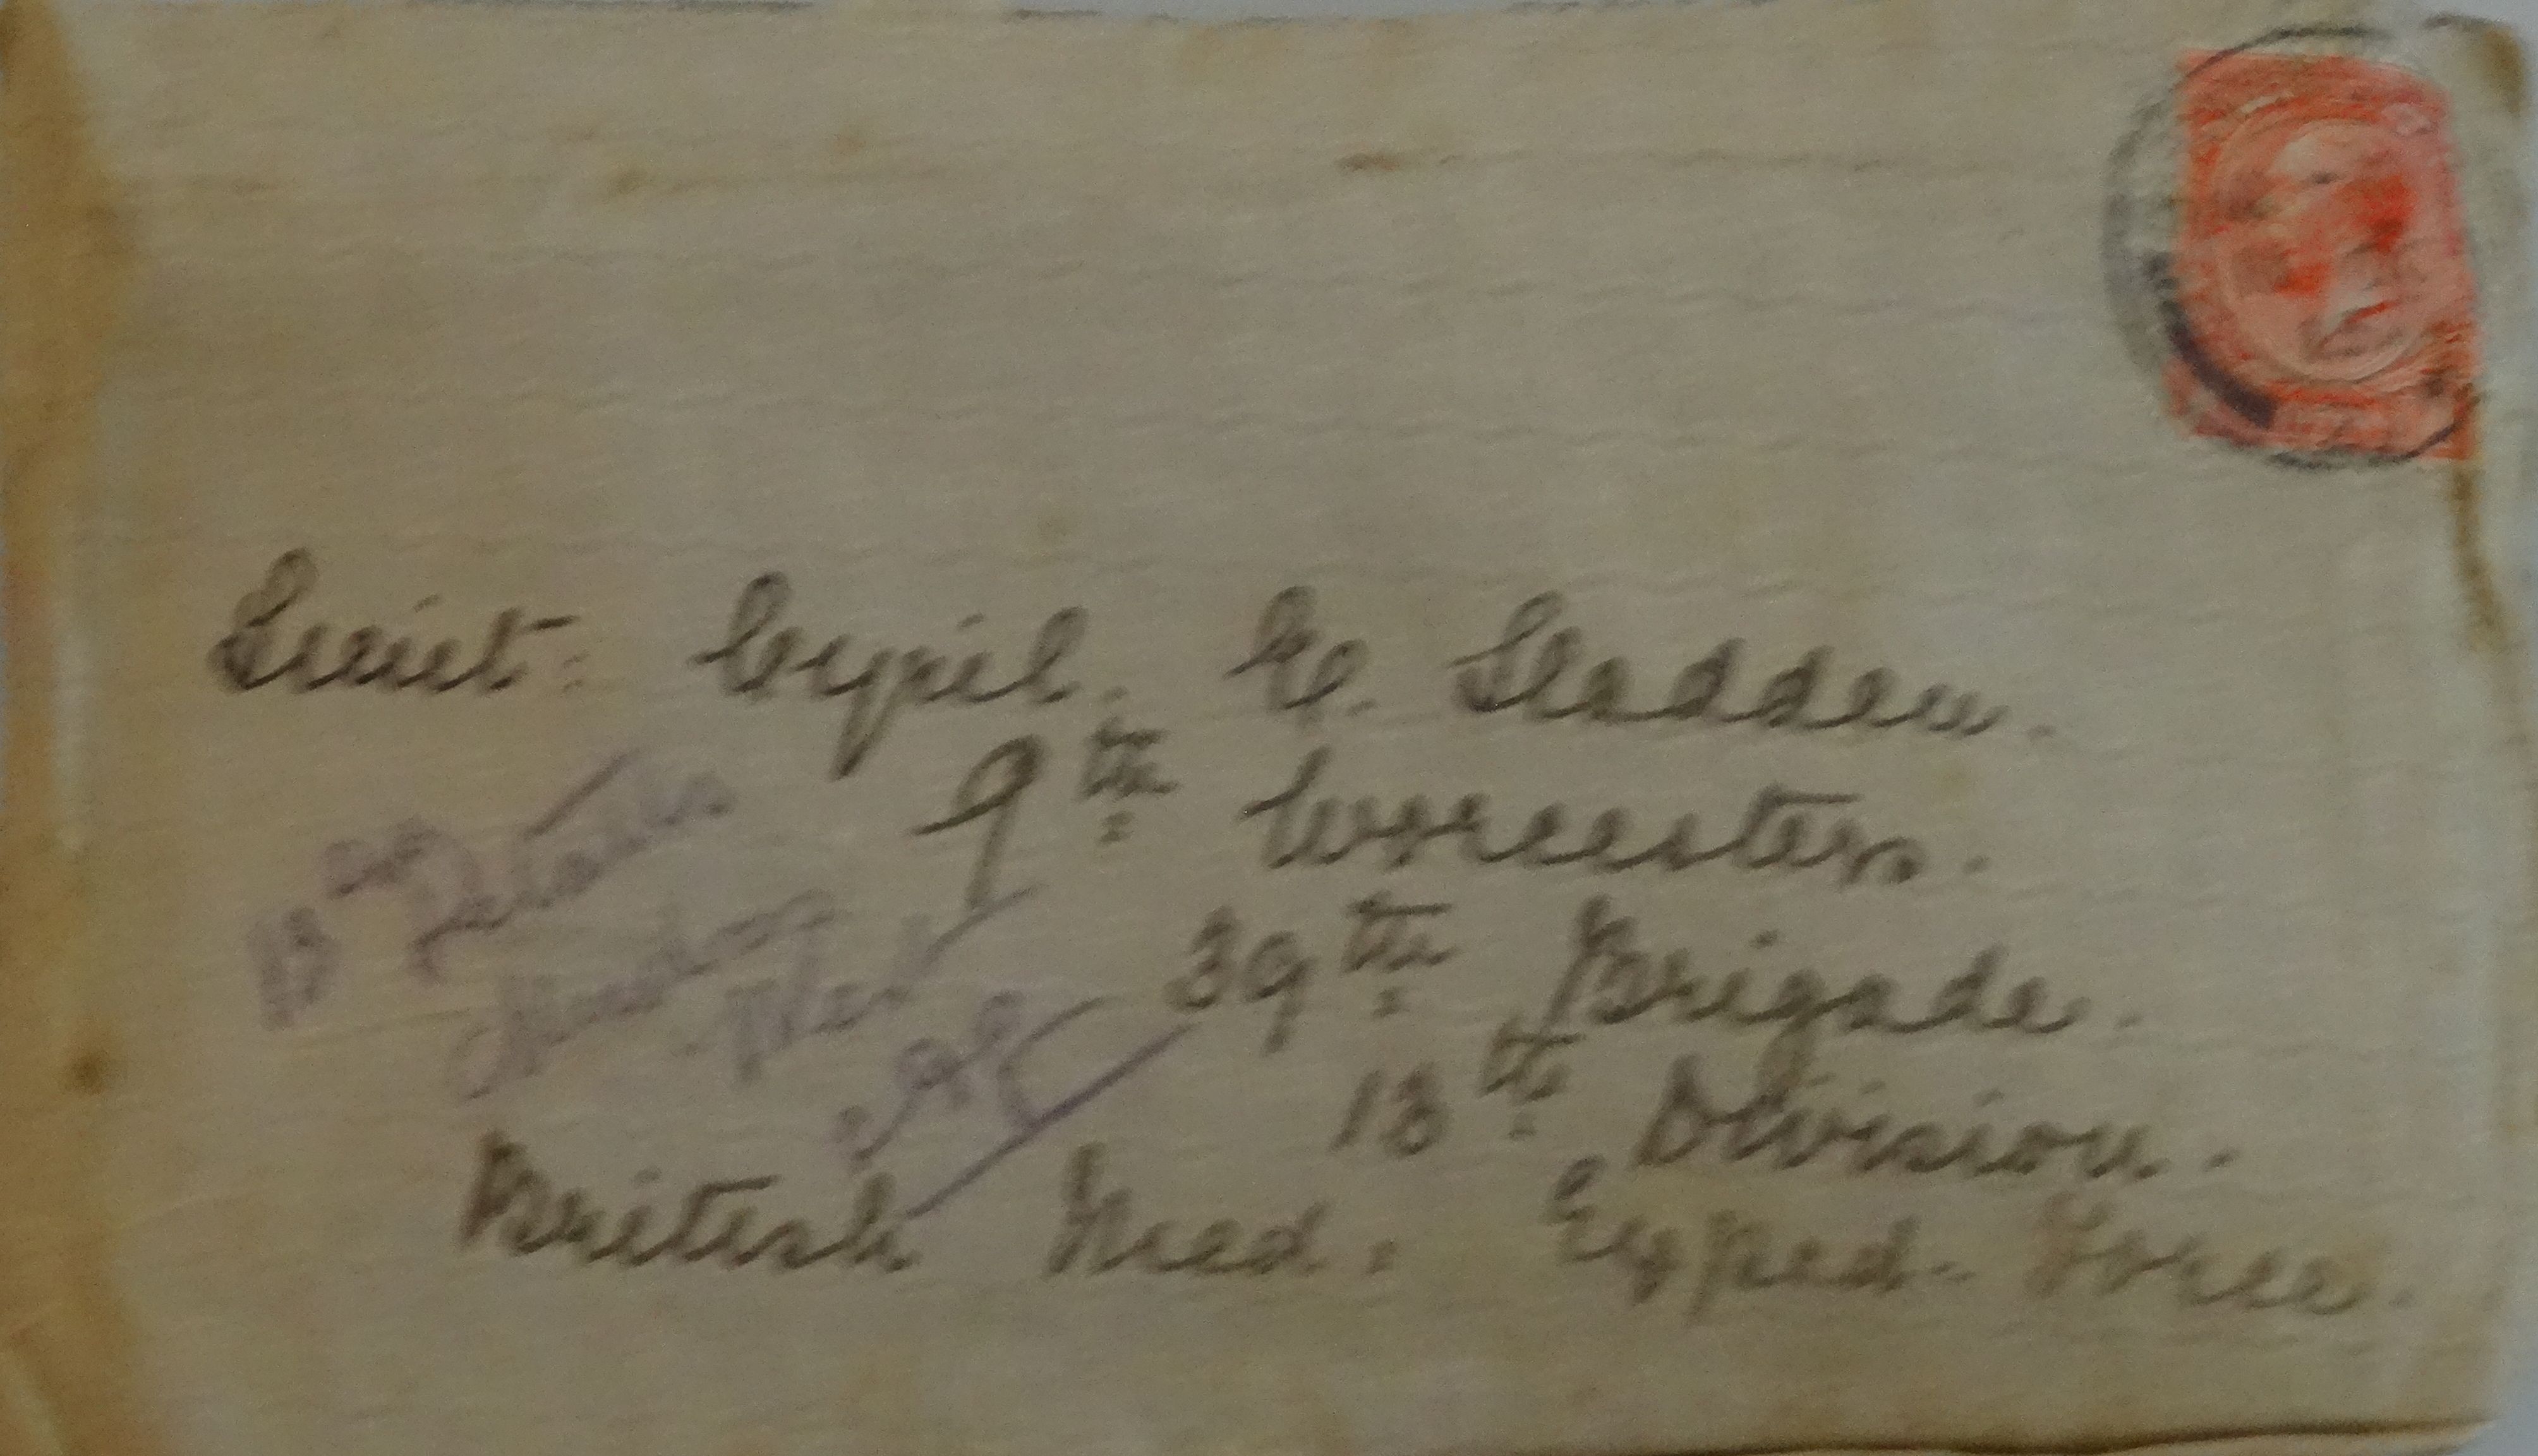 Lieut: Cyril. E. Sladden.
9th Worcesters.
39th Brigade.
13th Division.
British Med. Exped. Force.